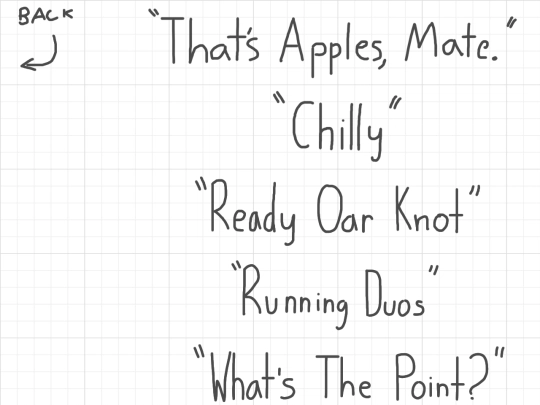 BACK
"That's Apples, Mate."
"Chilly"
"Ready Oar Knot"
"Running Duos"
"What's The Point?"